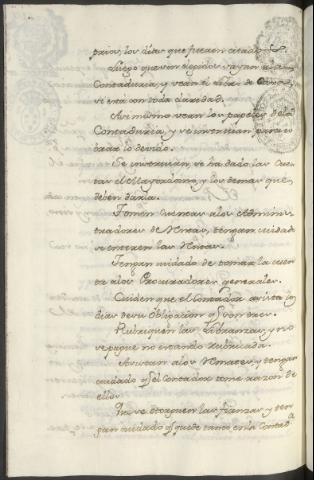 prior, los dias que fueren citados
Luego que son elegidos vayan a la
Contaduria, y vean el libro de
si esta con toda claridad.
Assi mismo vean los papeles de la
Contaduria, y se inventarien para co
brar lo devido.
Se inventarian, se ha dado las Cuen
tas el Mayordomo, y los demas que
deben darla.
Tomen cuentas a los Adminis
tradores de Rentas, tengan cuidado
se enteren las Rentas.
Tengan cuidado de tomar la cuen
ta a los Procuradores generales.
Cuiden que el Contador assista los
dias de su obligacion
Rubriquen las Libranzas, y no
se pague no estando rubricada.
Assistan a los Remates, y tengan
cuidado q̃ el Contador tome razon de
ellos
se otorguen las fianzas, y ten
gan cuidado q̃ quede tanto en la Contadª